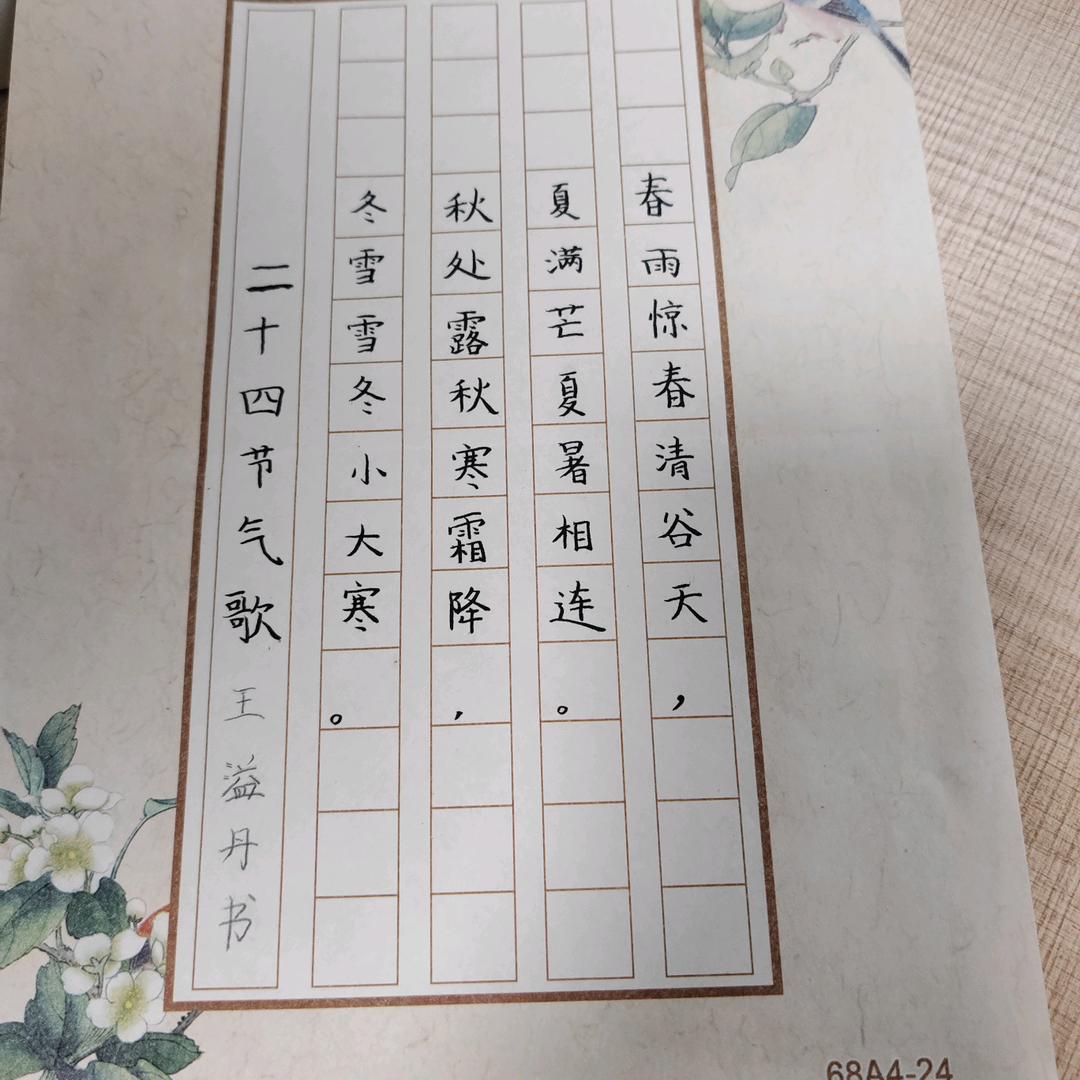 春雨惊春清谷天，
夏满芒夏暑相连。
秋处露秋寒霜降，
冬雪雪冬小大寒。
二十四节气歌 王溢丹书
68A4-24